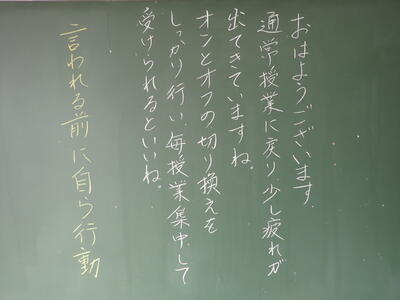 おはようございます。
通常授業に戻り、少し疲れが
出てきていますね。
オンとオフの切り換えを
しっかり行い、毎授業集中して
受けられるといいね。
言われる前に自ら行動